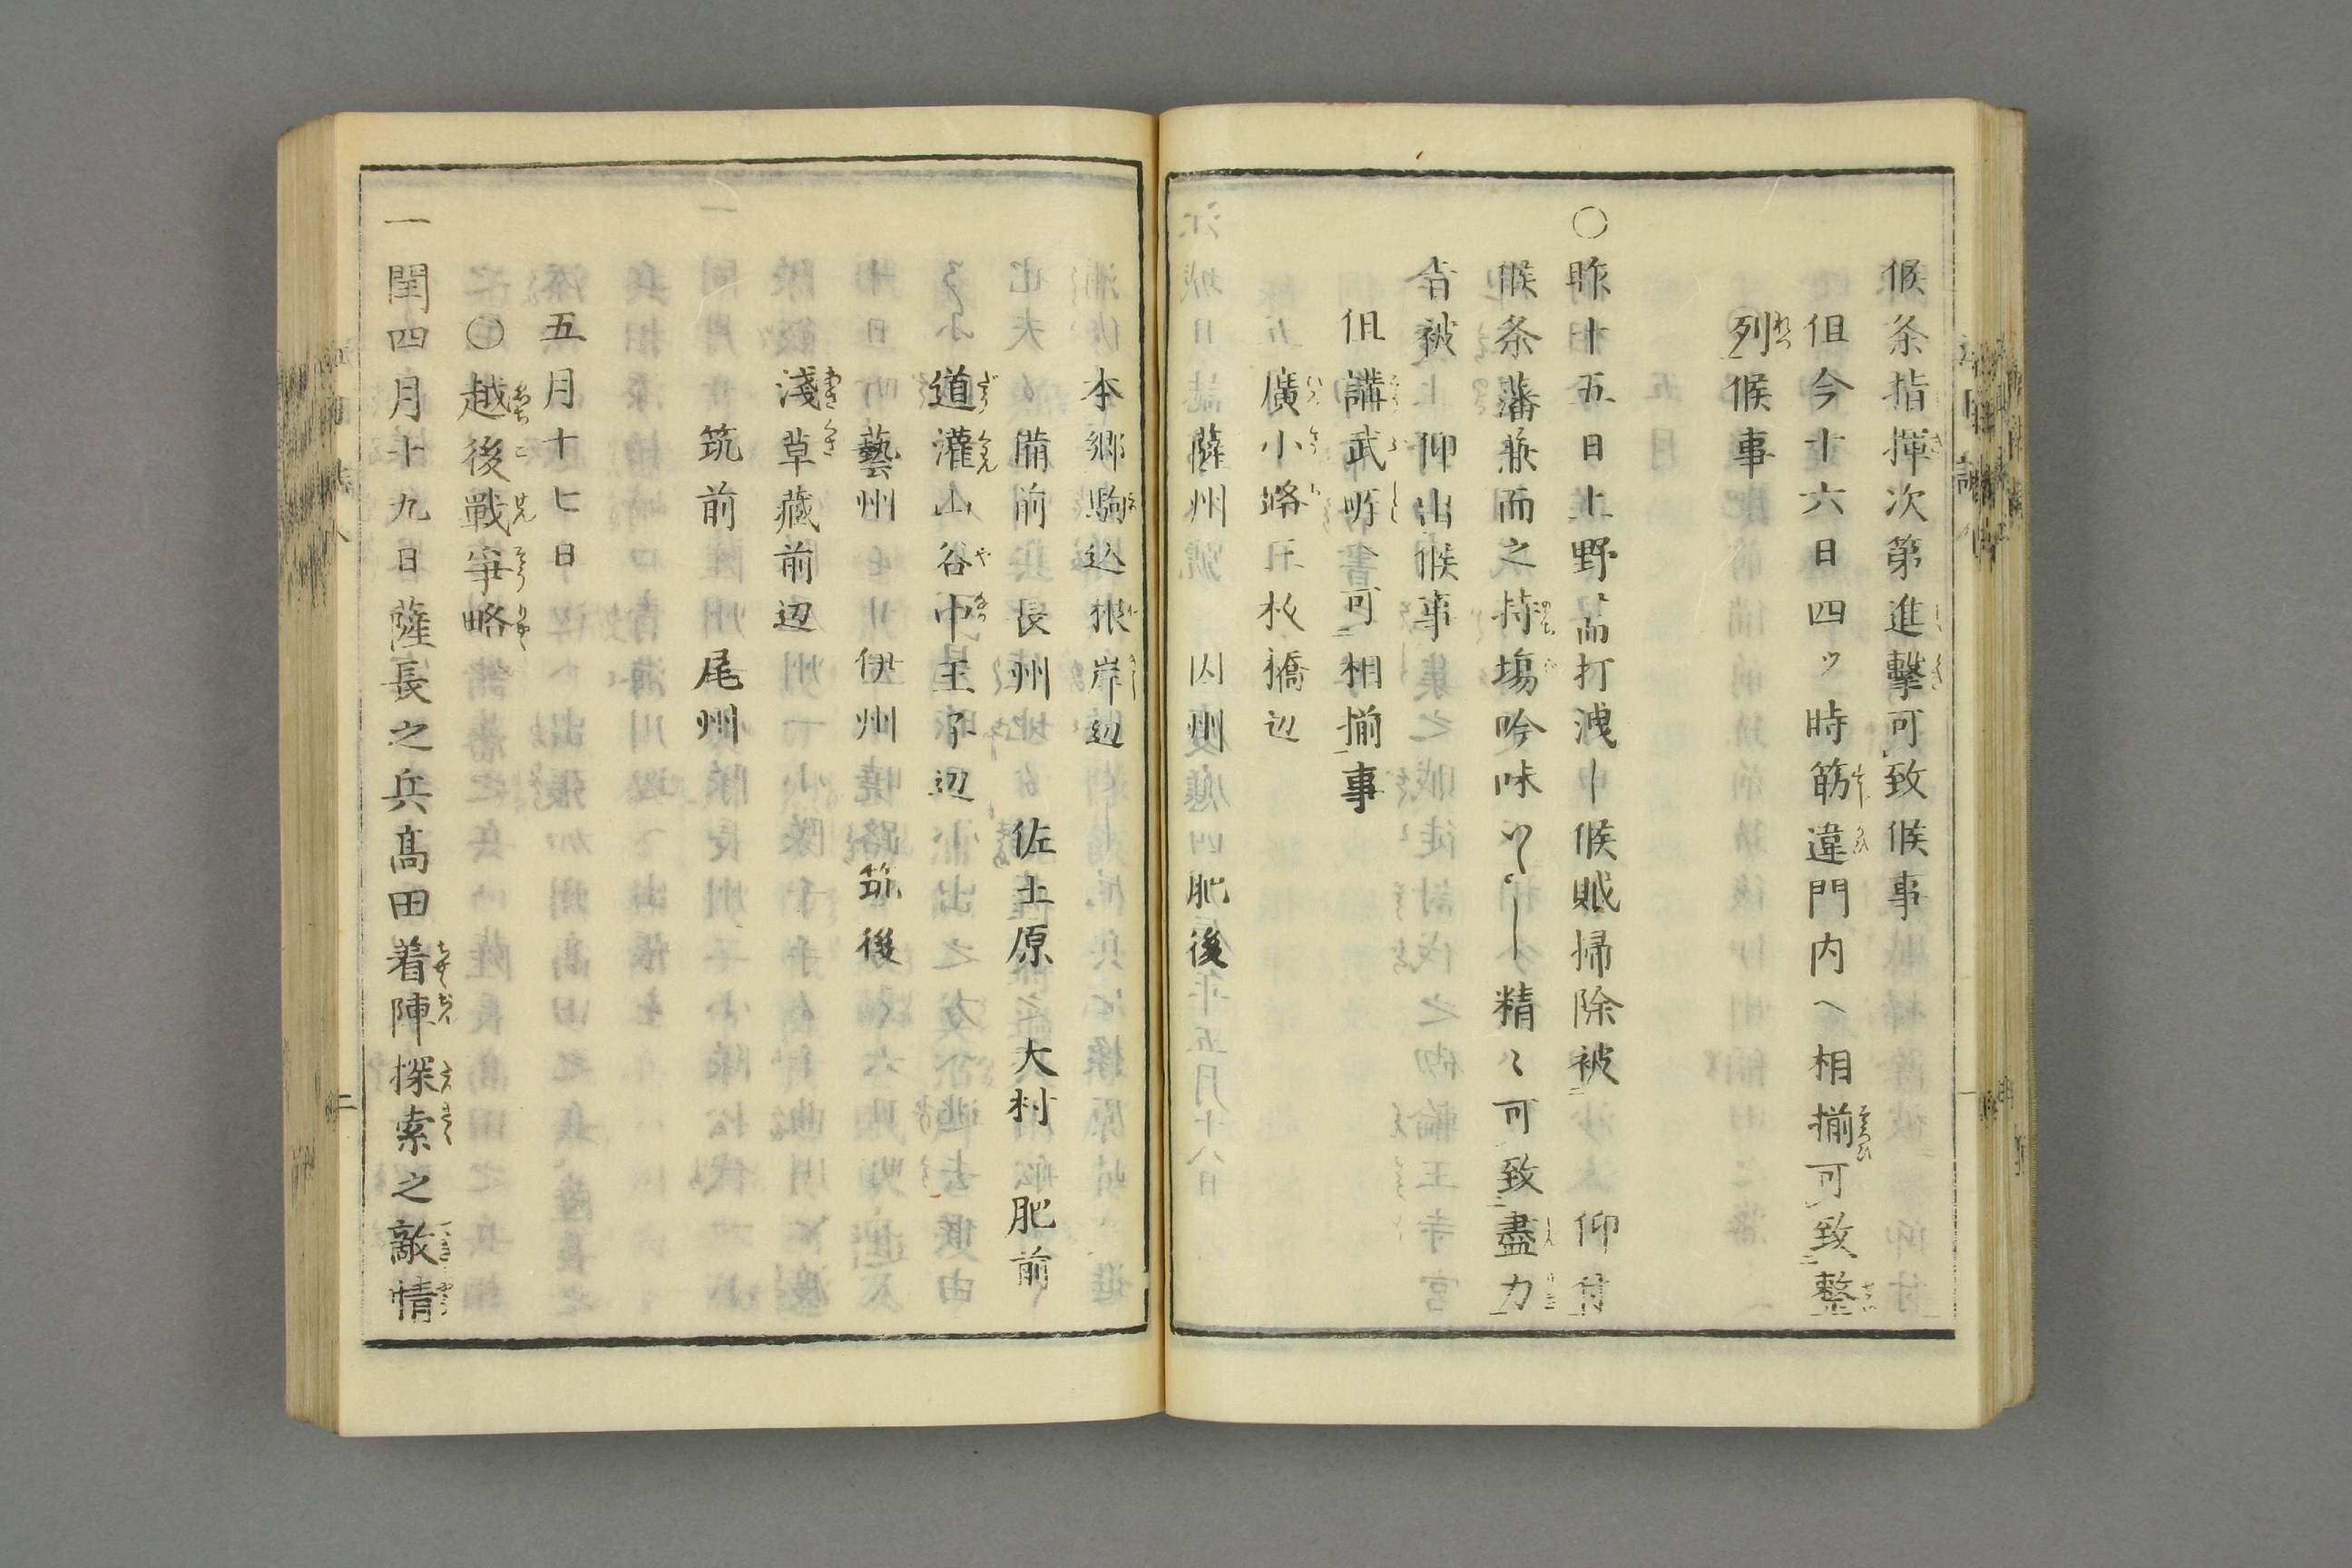 候条指揮次第進撃可致候事
但今十六日四ッ時筋違門内ヘ相揃可致整
列候事
〇昨十五日上野ニ而打洩シ候賊掃除被　仰付
候条藩兼而之持場吟味ツヽシ精〻可致盡力
旨被　仰出候事
但講武所ヘ可相揃事
廣小路五枚橋辺
薩州　因州　肥後
本郷駒込根岸辺
備前　長州　佐土原　大村　肥前
道灌山谷中王子辺
藝州　伊州　筑後
淺草藏前辺
筑前　尾州
五月十七日
〇越後戰爭略
一閏四月十九日薩長之兵髙田着陣探索之敵情